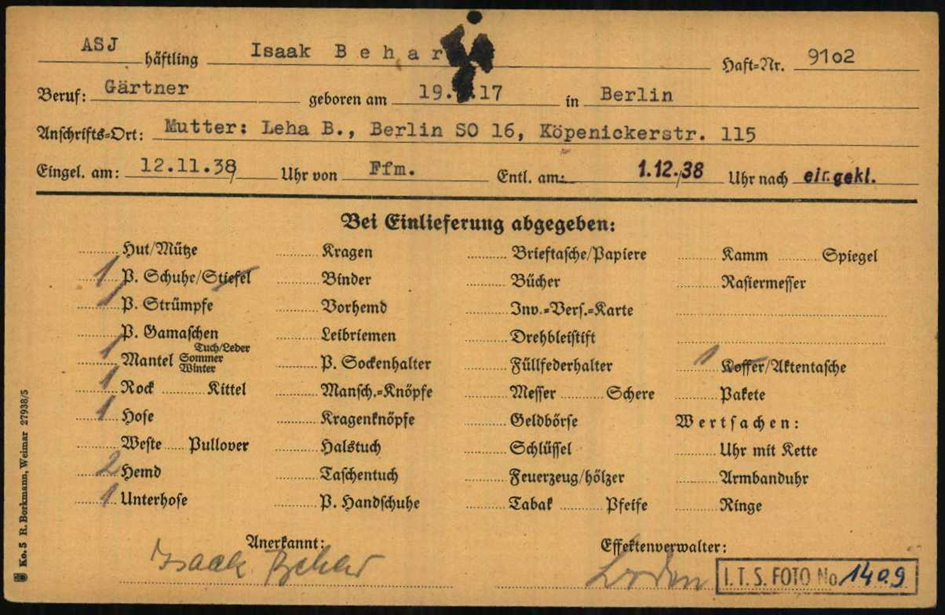 ASJ häftling Isaak Behar Haft=Nr. 9102
Beruf: Gärtner geboren am 19. 17 in Berlin
Anschrifts=Ort: Mutter: Leha B., Berlin SO 16, Köpenickerstr. 115
Eingel. am: 12.11.38 Uhr von Ffm. Entl. am: 1.12.38 Uhr nach eir.gekl.
Bei Einlieferung abgegeben:
Hut/Mütze Kragen Brieftasche/Papiere Kamm Spiegel
1 P. Schuhe/Stiefel Binder Bücher Rasiermesser
1 P. Strümpfe Vorhemd Inv.=Vers.=Karte
P. Gamaschen Leibriemen Drehbleistift
1 Mantel Tuch/Leder Sommer Winter P. Sockenhalter Füllfederhalter 1 Koffer/Aktentasche
1 Rock Kittel Mansch.=Knöpfe Messer Schere Pakete
1 Hose Kragenknöpfe Geldbörse Wertsachen:
Weste Pullover Halstuch Schlüssel Uhr mit Kette
2 Hemd Taschentuch Feuerzeug/hölzer Armbanduhr
1 Unterhose P. Handschuhe Tabak Pfeife Ringe
Anerkannt: Effektenverwalter:
Isaak Behar
I.T.S. FOTO No. 1409
Ko. 5 R. Borkmann, Weimar 27938/5